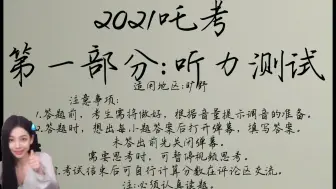 2021吒考
第一部分:听力测试
适用地区:旷野
注意事项:
1.答题前,考生需将做好,根据音量提示调音的准备。
2.答题时,想出每小题答案后打开弹幕,填写答案。
未答出前先关闭弹幕。
需要思考时,可暂停视频思考。
考试结束后可自行计算分数在评论区交流。
注:必须认真读题